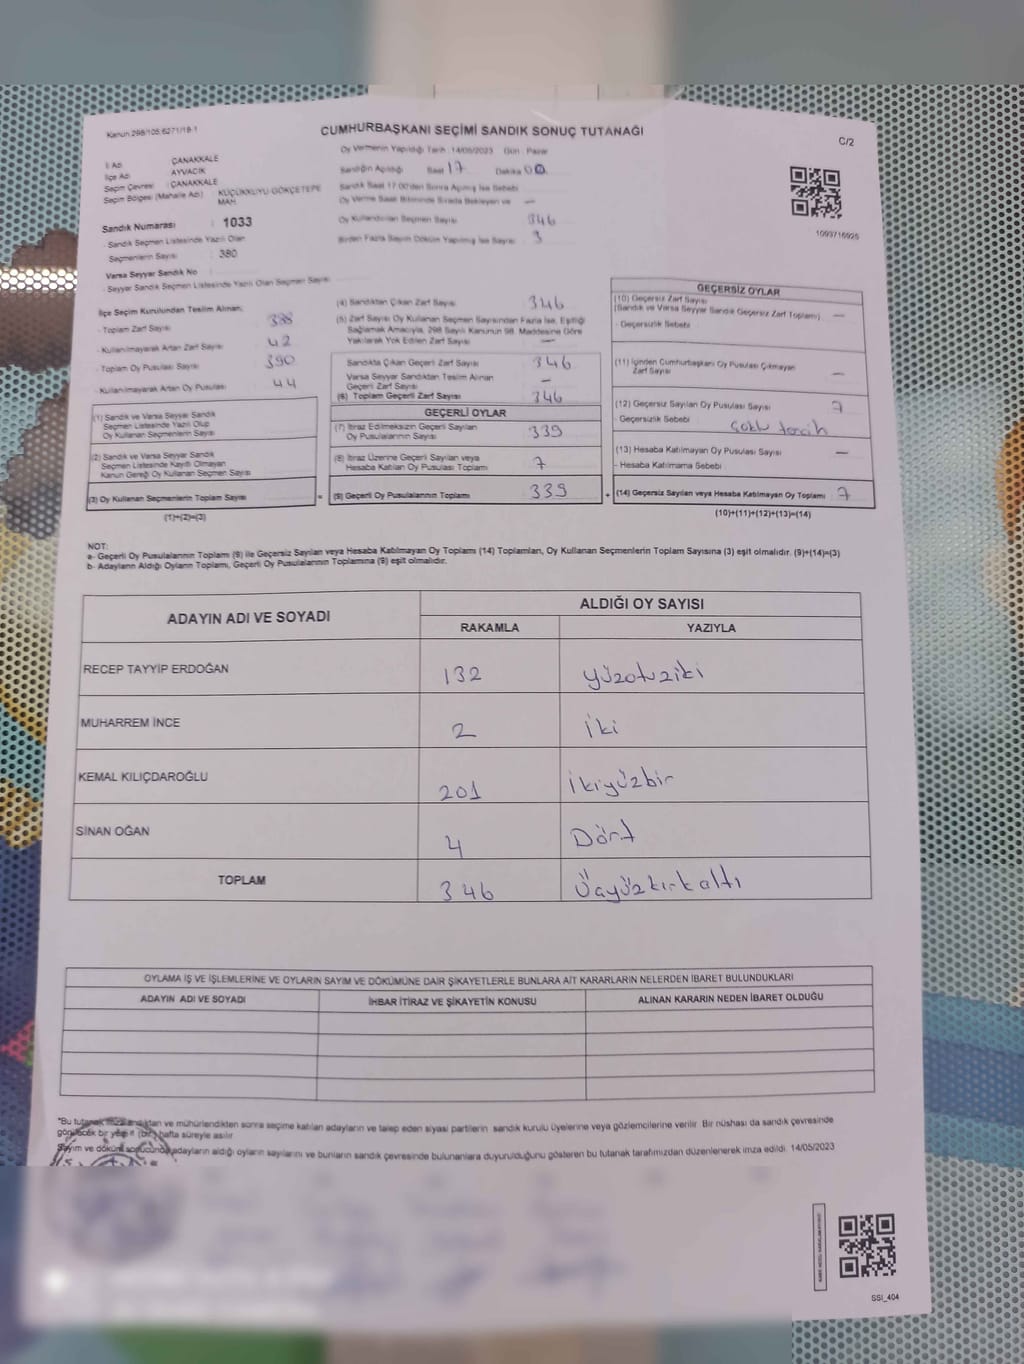 Kanun 298/105 6271/18-1
CUMHURBAŞKANI SEÇİMİ SANDIK SONUÇ TUTANAĞI
C/2
İl Adı : ÇANAKKALE
İlçe Adı : AYVACIK
Seçim Çevresi : ÇANAKKALE
Seçim Bölgesi (Mahalle Adı) : KÜÇÜKKUYU-GÖKÇETEPE MAH
Sandık Numarası : 1033
- Sandık Seçmen Listesinde Yazılı Olan
Seçmenlerin Sayısı : 380
Varsa Seyyar Sandık No
- Seyyar Sandık Seçmen Listesinde Yazılı Olan Seçmen Sayısı
Oy Vermenin Yapıldığı Tarih : 14/05/2023 Gün : Pazar
Sandığın Açıldığı Saat 17 Dakika 00
Sandık Saat 17.00'den Sonra Açılmış İse Sebebi
Oy Verme Saati Bitiminde Sırada Bekleyen ve —
Oy Kullandırılan Seçmen Sayısı 346
Birden Fazla Sayım Döküm Yapılmış İse Sayısı 3
1093716925
İlçe Seçim Kurulundan Teslim Alınan;
- Toplam Zarf Sayısı 388
- Kullanılmayarak Artan Zarf Sayısı 42
- Toplam Oy Pusulası Sayısı 390
- Kullanılmayarak Artan Oy Pusulası 44
(1) Sandık ve Varsa Seyyar Sandık
Seçmen Listesinde Yazılı Olup
Oy Kullanan Seçmenlerin Sayısı
(2) Sandık ve Varsa Seyyar Sandık
Seçmen Listesinde Kayıtlı Olmayan
Kanun Gereği Oy Kullanan Seçmen Sayısı
(3) Oy Kullanan Seçmenlerin Toplam Sayısı
(1)+(2)=(3)
(4) Sandıktan Çıkan Zarf Sayısı 346
(5) Zarf Sayısı Oy Kullanan Seçmen Sayısından Fazla İse, Eşitliği
Sağlamak Amacıyla, 298 Sayılı Kanunun 98. Maddesine Göre
Yakılarak Yok Edilen Zarf Sayısı —
Sandıkta Çıkan Geçerli Zarf Sayısı 346
Varsa Seyyar Sandıktan Teslim Alınan
Geçerli Zarf Sayısı —
(6) Toplam Geçerli Zarf Sayısı 346
GEÇERLİ OYLAR
(7) İtiraz Edilmeksizin Geçerli Sayılan
Oy Pusulalarının Sayısı 339
(8) İtiraz Üzerine Geçerli Sayılan veya
Hesaba Katılan Oy Pusulası Toplamı 7
= (9) Geçerli Oy Pusulalarının Toplamı 339
GEÇERSİZ OYLAR
(10) Geçersiz Zarf Sayısı
(Sandık ve Varsa Seyyar Sandık Geçersiz Zarf Toplamı) —
- Geçersizlik Sebebi
(11) İçinden Cumhurbaşkanı Oy Pusulası Çıkmayan
Zarf Sayısı —
(12) Geçersiz Sayılan Oy Pusulası Sayısı 7
- Geçersizlik Sebebi Çoklu tercih
(13) Hesaba Katılmayan Oy Pusulası Sayısı —
- Hesaba Katılmama Sebebi
+ (14) Geçersiz Sayılan veya Hesaba Katılmayan Oy Toplamı 7
(10)+(11)+(12)+(13)=(14)
NOT:
a- Geçerli Oy Pusulalarının Toplamı (9) ile Geçersiz Sayılan veya Hesaba Katılmayan Oy Toplamı (14) Toplamları, Oy Kullanan Seçmenlerin Toplam Sayısına (3) eşit olmalıdır. (9)+(14)=(3)
b- Adayların Aldığı Oyların Toplamı, Geçerli Oy Pusulalarının Toplamına (9) eşit olmalıdır.
ADAYIN ADI VE SOYADI
ALDIĞI OY SAYISI
RAKAMLA YAZIYLA
RECEP TAYYİP ERDOĞAN 132 yüzotuziki
MUHARREM İNCE 2 iki
KEMAL KILIÇDAROĞLU 201 ikiyüzbir
SİNAN OĞAN 4 Dört
TOPLAM 346 üçyüzkırkaltı
OYLAMA İŞ VE İŞLEMLERİNE VE OYLARIN SAYIM VE DÖKÜMÜNE DAİR ŞİKAYETLERLE BUNLARA AİT KARARLARIN NELERDEN İBARET BULUNDUKLARI
ADAYIN ADI VE SOYADI İHBAR İTİRAZ VE ŞİKAYETİN KONUSU ALINAN KARARIN NEDEN İBARET OLDUĞU
*Bu tutanak imzalandıktan ve mühürlendikten sonra seçime katılan adayların ve talep eden siyasi partilerin sandık kurulu üyelerine veya gözlemcilerine verilir. Bir nüshası da sandık çevresinde
görülecek bir yere (bir) hafta süreyle asılır.
Sayım ve döküm sonucunda adayların aldığı oyların sayılarını ve bunların sandık çevresinde bulunanlara duyurulduğunu gösteren bu tutanak tarafımızdan düzenlenerek imza edildi. 14/05/2023
SSI_404